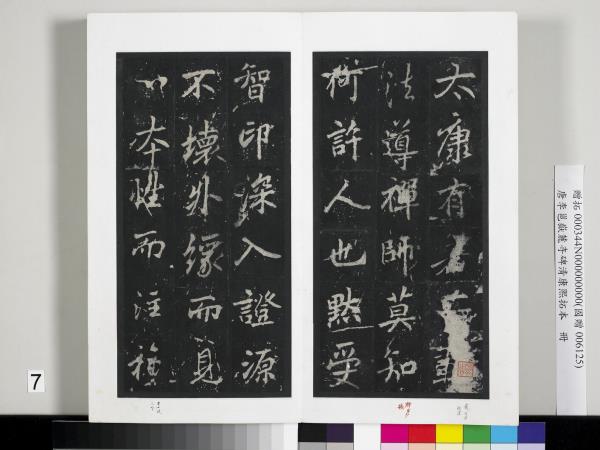 太康有若
法導禪師莫知
何許人也默受
智印深入證源
不壞外緣而見
心本性而注
贈拓 000344N000000000(國贈 006125)
唐李邕嶽麓寺碑清康熙拓本 冊
7